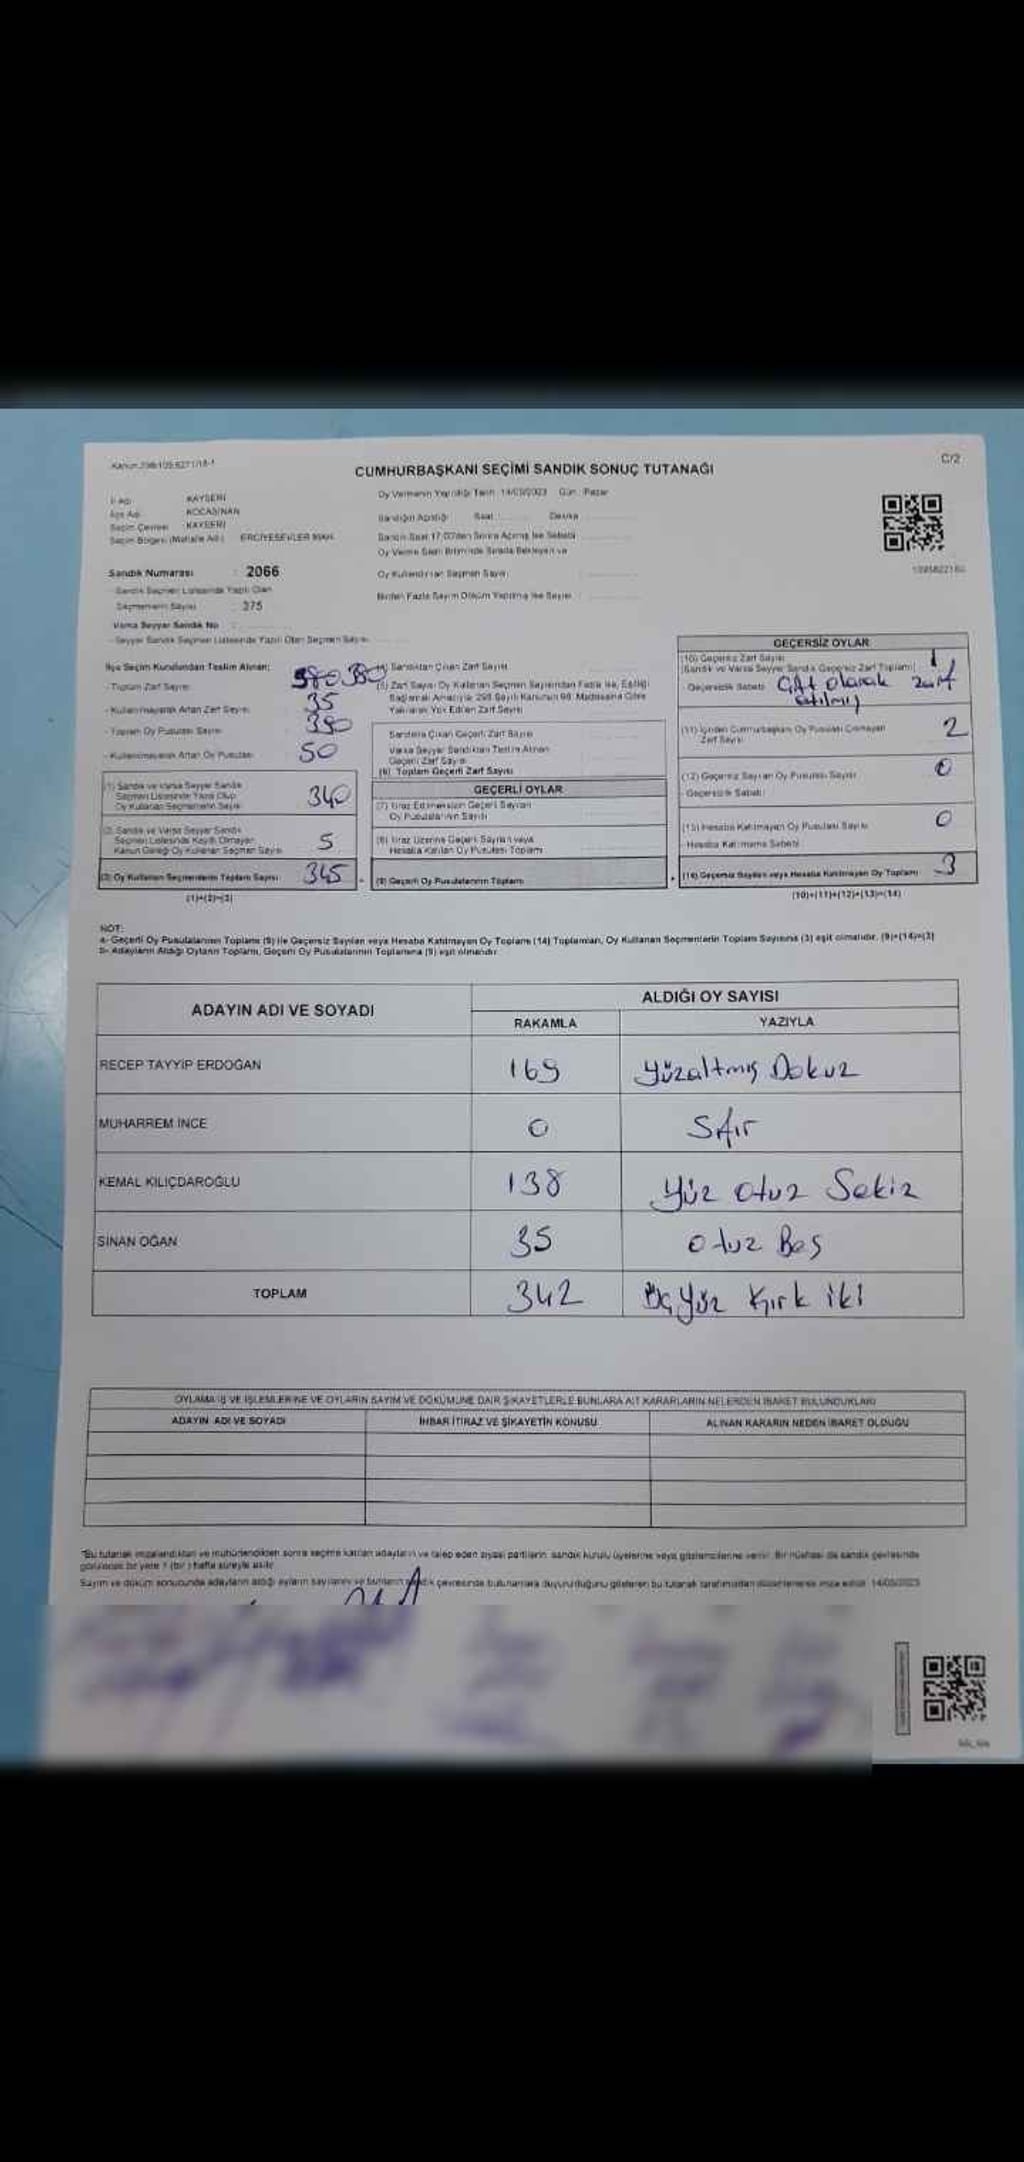 Kanun:298/105,6271/18-1
C/2
CUMHURBAŞKANI SEÇİMİ SANDIK SONUÇ TUTANAĞI
İl Adı : KAYSERİ
İlçe Adı : KOCASİNAN
Seçim Çevresi : KAYSERİ
Seçim Bölgesi (Mahalle Adı) : ERCİYESEVLER MAH.
Sandık Numarası : 2066
Sandık Seçmen Listesinde Yazılı Olan
Seçmenlerin Sayısı : 375
Varsa Seyyar Sandık No :
- Seyyar Sandık Seçmen Listesinde Yazılı Olan Seçmen Sayısı
Oy Vermenin Yapıldığı Tarih : 14/05/2023 Gün : Pazar
Sandığın Açıldığı Saat Dakika
Sandık Saat 17:00'den Sonra Açılmış İse Sebebi
Oy Verme Saati Bitiminde Sırada Bekleyen ve
Oy Kullandırılan Seçmen Sayısı
Birden Fazla Sayım Döküm Yapılmış İse Sayısı
İlçe Seçim Kurulundan Teslim Alınan;
- Toplam Zarf Sayısı 380 380
- Kullanılmayarak Artan Zarf Sayısı 35
- Toplam Oy Pusulası Sayısı 390
- Kullanılmayarak Artan Oy Pusulası 50
(1) Sandık ve Varsa Seyyar Sandık
Seçmen Listesinde Yazılı Olup
Oy Kullanan Seçmenlerin Sayısı 340
(2) Sandık ve Varsa Seyyar Sandık
Seçmen Listesinde Kayıtlı Olmayan
Kanun Gereği Oy Kullanan Seçmen Sayısı 5
(3) Oy Kullanan Seçmenlerin Toplam Sayısı 345
(1)+(2)=(3)
(4) Sandıktan Çıkan Zarf Sayısı
(5) Zarf Sayısı Oy Kullanan Seçmen Sayısından Fazla İse, Eşitliği
Sağlamak Amacıyla 298 Sayılı Kanunun 98. Maddesine Göre
Yakılarak Yok Edilen Zarf Sayısı
Sandıkta Çıkan Geçerli Zarf Sayısı
Varsa Seyyar Sandıktan Teslim Alınan
Geçerli Zarf Sayısı
(6) Toplam Geçerli Zarf Sayısı
GEÇERLİ OYLAR
(7) İtiraz Edilmeksizin Geçerli Sayılan
Oy Pusulalarının Sayısı
(8) İtiraz Üzerine Geçerli Sayılan veya
Hesaba Katılan Oy Pusulası Toplamı
(9) Geçerli Oy Pusulalarının Toplamı
GEÇERSİZ OYLAR
(10) Geçersiz Zarf Sayısı
(Sandık ve Varsa Seyyar Sandık Geçersiz Zarf Toplamı) 1
- Geçersizlik Sebebi Çift olarak zarf
atılmış
(11) İçinden Cumhurbaşkanı Oy Pusulası Çıkmayan
Zarf Sayısı 2
(12) Geçersiz Sayılan Oy Pusulası Sayısı 0
- Geçersizlik Sebebi
(13) Hesaba Katılmayan Oy Pusulası Sayısı 0
- Hesaba Katılmama Sebebi
(14) Geçersiz Sayılan veya Hesaba Katılmayan Oy Toplamı 3
(10)+(11)+(12)+(13)=(14)
NOT:
a- Geçerli Oy Pusulalarının Toplamı (9) ile Geçersiz Sayılan veya Hesaba Katılmayan Oy Toplamı (14) Toplamları, Oy Kullanan Seçmenlerin Toplam Sayısına (3) eşit olmalıdır. (9)+(14)=(3)
b- Adayların Aldığı Oyların Toplamı, Geçerli Oy Pusulalarının Toplamına (9) eşit olmalıdır.
ADAYIN ADI VE SOYADI
ALDIĞI OY SAYISI
RAKAMLA YAZIYLA
RECEP TAYYİP ERDOĞAN 169 Yüzaltmış Dokuz
MUHARREM İNCE 0 Sıfır
KEMAL KILIÇDAROĞLU 138 Yüz otuz Sekiz
SİNAN OĞAN 35 Otuz Beş
TOPLAM 342 Üçyüz Kırk iki
OYLAMA İŞ VE İŞLEMLERİNE VE OYLARIN SAYIM VE DÖKÜMÜNE DAİR ŞİKAYETLERLE BUNLARA AİT KARARLARIN NELERDEN İBARET BULUNDUKLARI
ADAYIN ADI VE SOYADI İHBAR İTİRAZ VE ŞİKAYETİN KONUSU ALINAN KARARIN NEDEN İBARET OLDUĞU
*Bu tutanak imzalandıktan ve mühürlendikten sonra seçime katılan adayların ve talep eden siyasi partilerin sandık kurulu üyelerine veya gözlemcilerine verilir. Bir nüshası da sandık çevresinde
görülecek bir yere 1 (bir) hafta süreyle asılır.